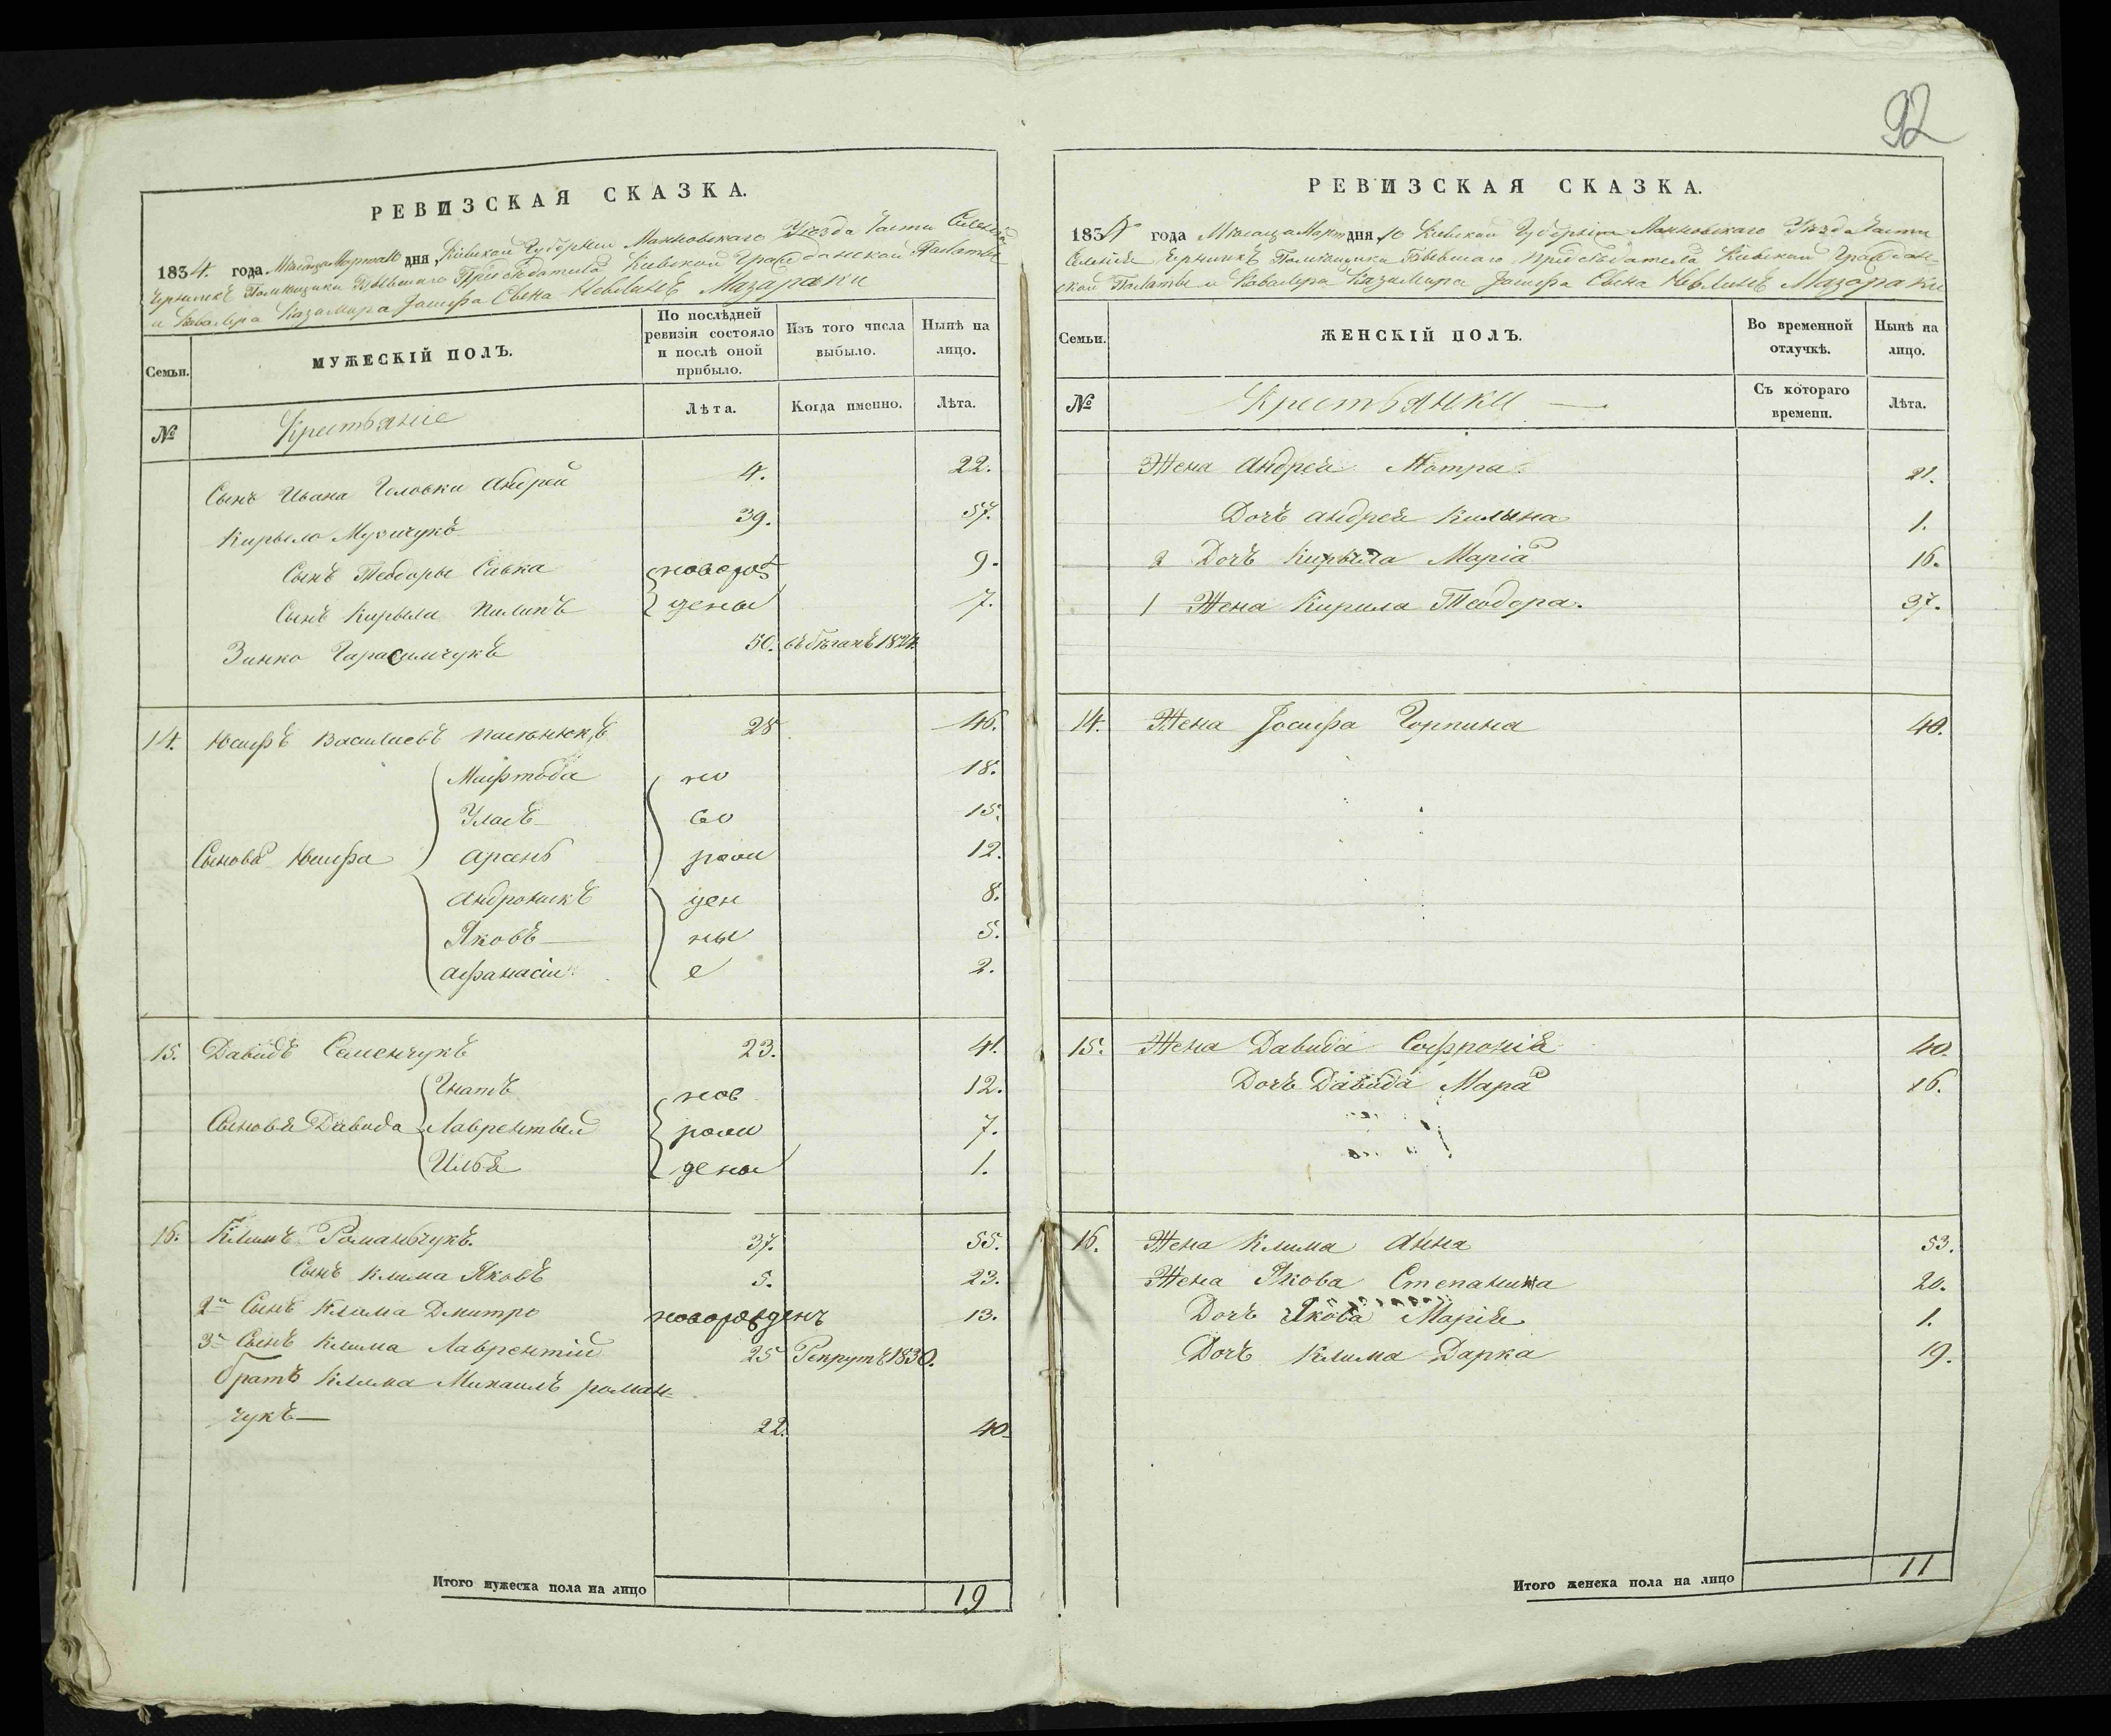 92
РЕВИЗСКАЯ СКАЗКА.
1834. года Мѣсяца Марта 10 дня Кіевской Губерніи Махновскаго Уѣзда Части Селенія
Помѣщика Бывшаго Предсѣдателя Кіевской Гражданской Палаты
и Кавалера Казимира Іосифа Сына Мазараки
Семьи.
МУЖЕСКІЙ ПОЛЪ.
По послѣдней ревизіи состояло и послѣ оной прибыло.
Изъ того числа выбыло.
Нынѣ на лицо.
№
Крестьяніе
Лѣта.
Когда именно.
Лѣта.
Сынъ Ивана Головки Андрей 4. 22.
Кирыло 39. 57.
Сынъ Теодоры Савка новорож 9.
Сынъ Кирыла Пилипъ дены 7.
Зинко Гарасимчукъ 50. въ бѣгахъ 1824.
14. Юсифъ Василиевъ 28 46.
но 18.
Уласъ во 15.
Сыновя Юсифа Арсень рож 12.
Андроникъ ден 8.
Яковъ ны 5.
Афанасіи е 2.
15. Давидъ Семенчукъ 23. 41.
Гнатъ нов 12.
Сыновя Давида Лаврентый рож 7.
Илья дены 1.
16. Климъ Романьчукъ. 37. 55.
Сынъ Клима Яковъ 5. 23.
2й Сынъ Клима Дмитро новорожденъ 13.
3й Сынъ Клима Лаврентій 25 Рекрутъ 1830.
братъ Клима Михаилъ роман-
чукъ 22. 40.
Итого мужеска пола на лицо 19
РЕВИЗСКАЯ СКАЗКА.
1834 года Мѣсяца Март дня 10 Кіевской Губерніи Махновскаго Уѣзда Части
Селенія Помѣщика Бывшаго Предсѣдателя Кіевской Граждан-
ской Палаты и Кавалера Казимира Іосифа Сына Мазараки
Семьи.
ЖЕНСКІЙ ПОЛЪ.
Во временной отлучкѣ.
Нынѣ на лицо.
№
Крестьянки
Съ котораго времени.
Лѣта.
Жена Андрея Мотра 21.
Дочъ Андрея Килына 1.
2 Дочъ Кирыла Марія 16.
1 Жена Кирила Теодора. 37.
14. Жена Іосифа Горпина 40.
15. Жена Давида Софронія 40.
Дочъ Давида Мара 16.
16. Жена Клима Анна 53.
Жена Якова Степанида 20.
Дочъ Якова Марія 1.
Дочъ Клима Дарка 19.
Итого женска пола на лицо 11